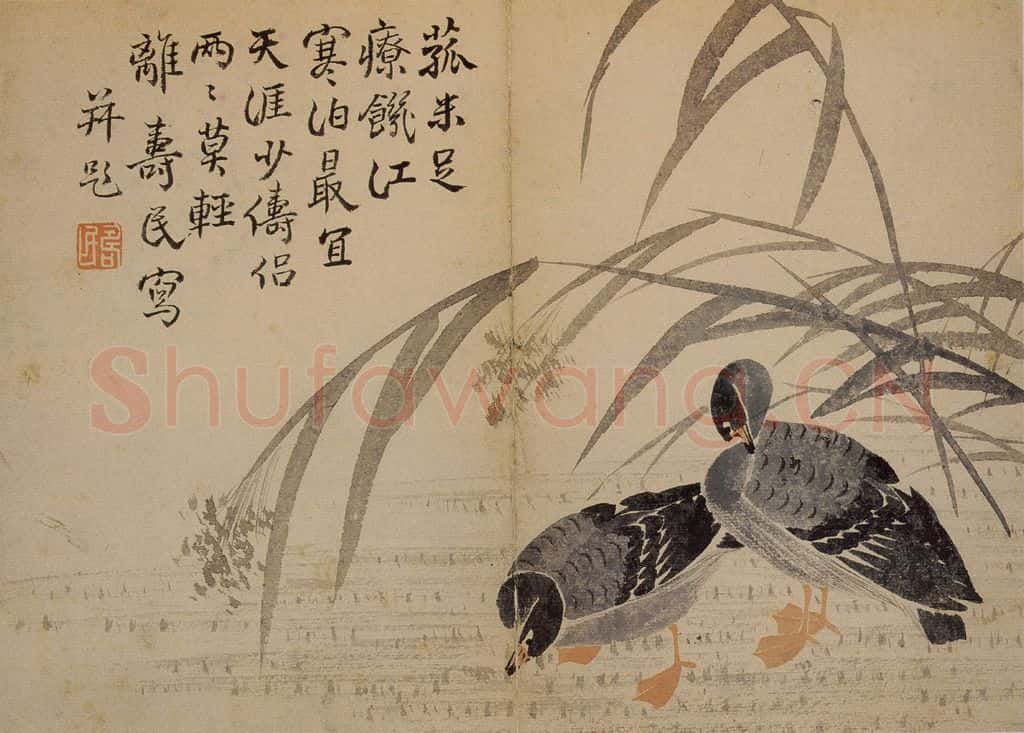 菰米足
療饑江
寒泊最宜
天涯少儔侶
兩〻莫輕
離 壽民寫
并題
Shufawang.CN